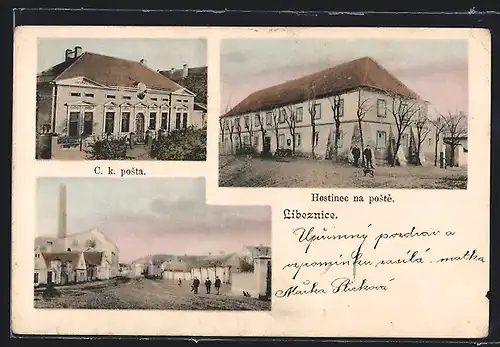 C. k. pošta.
Hostinec na poště.
Libeznice.
Upřímný pozdrav a
vzpomínku zasílá matka